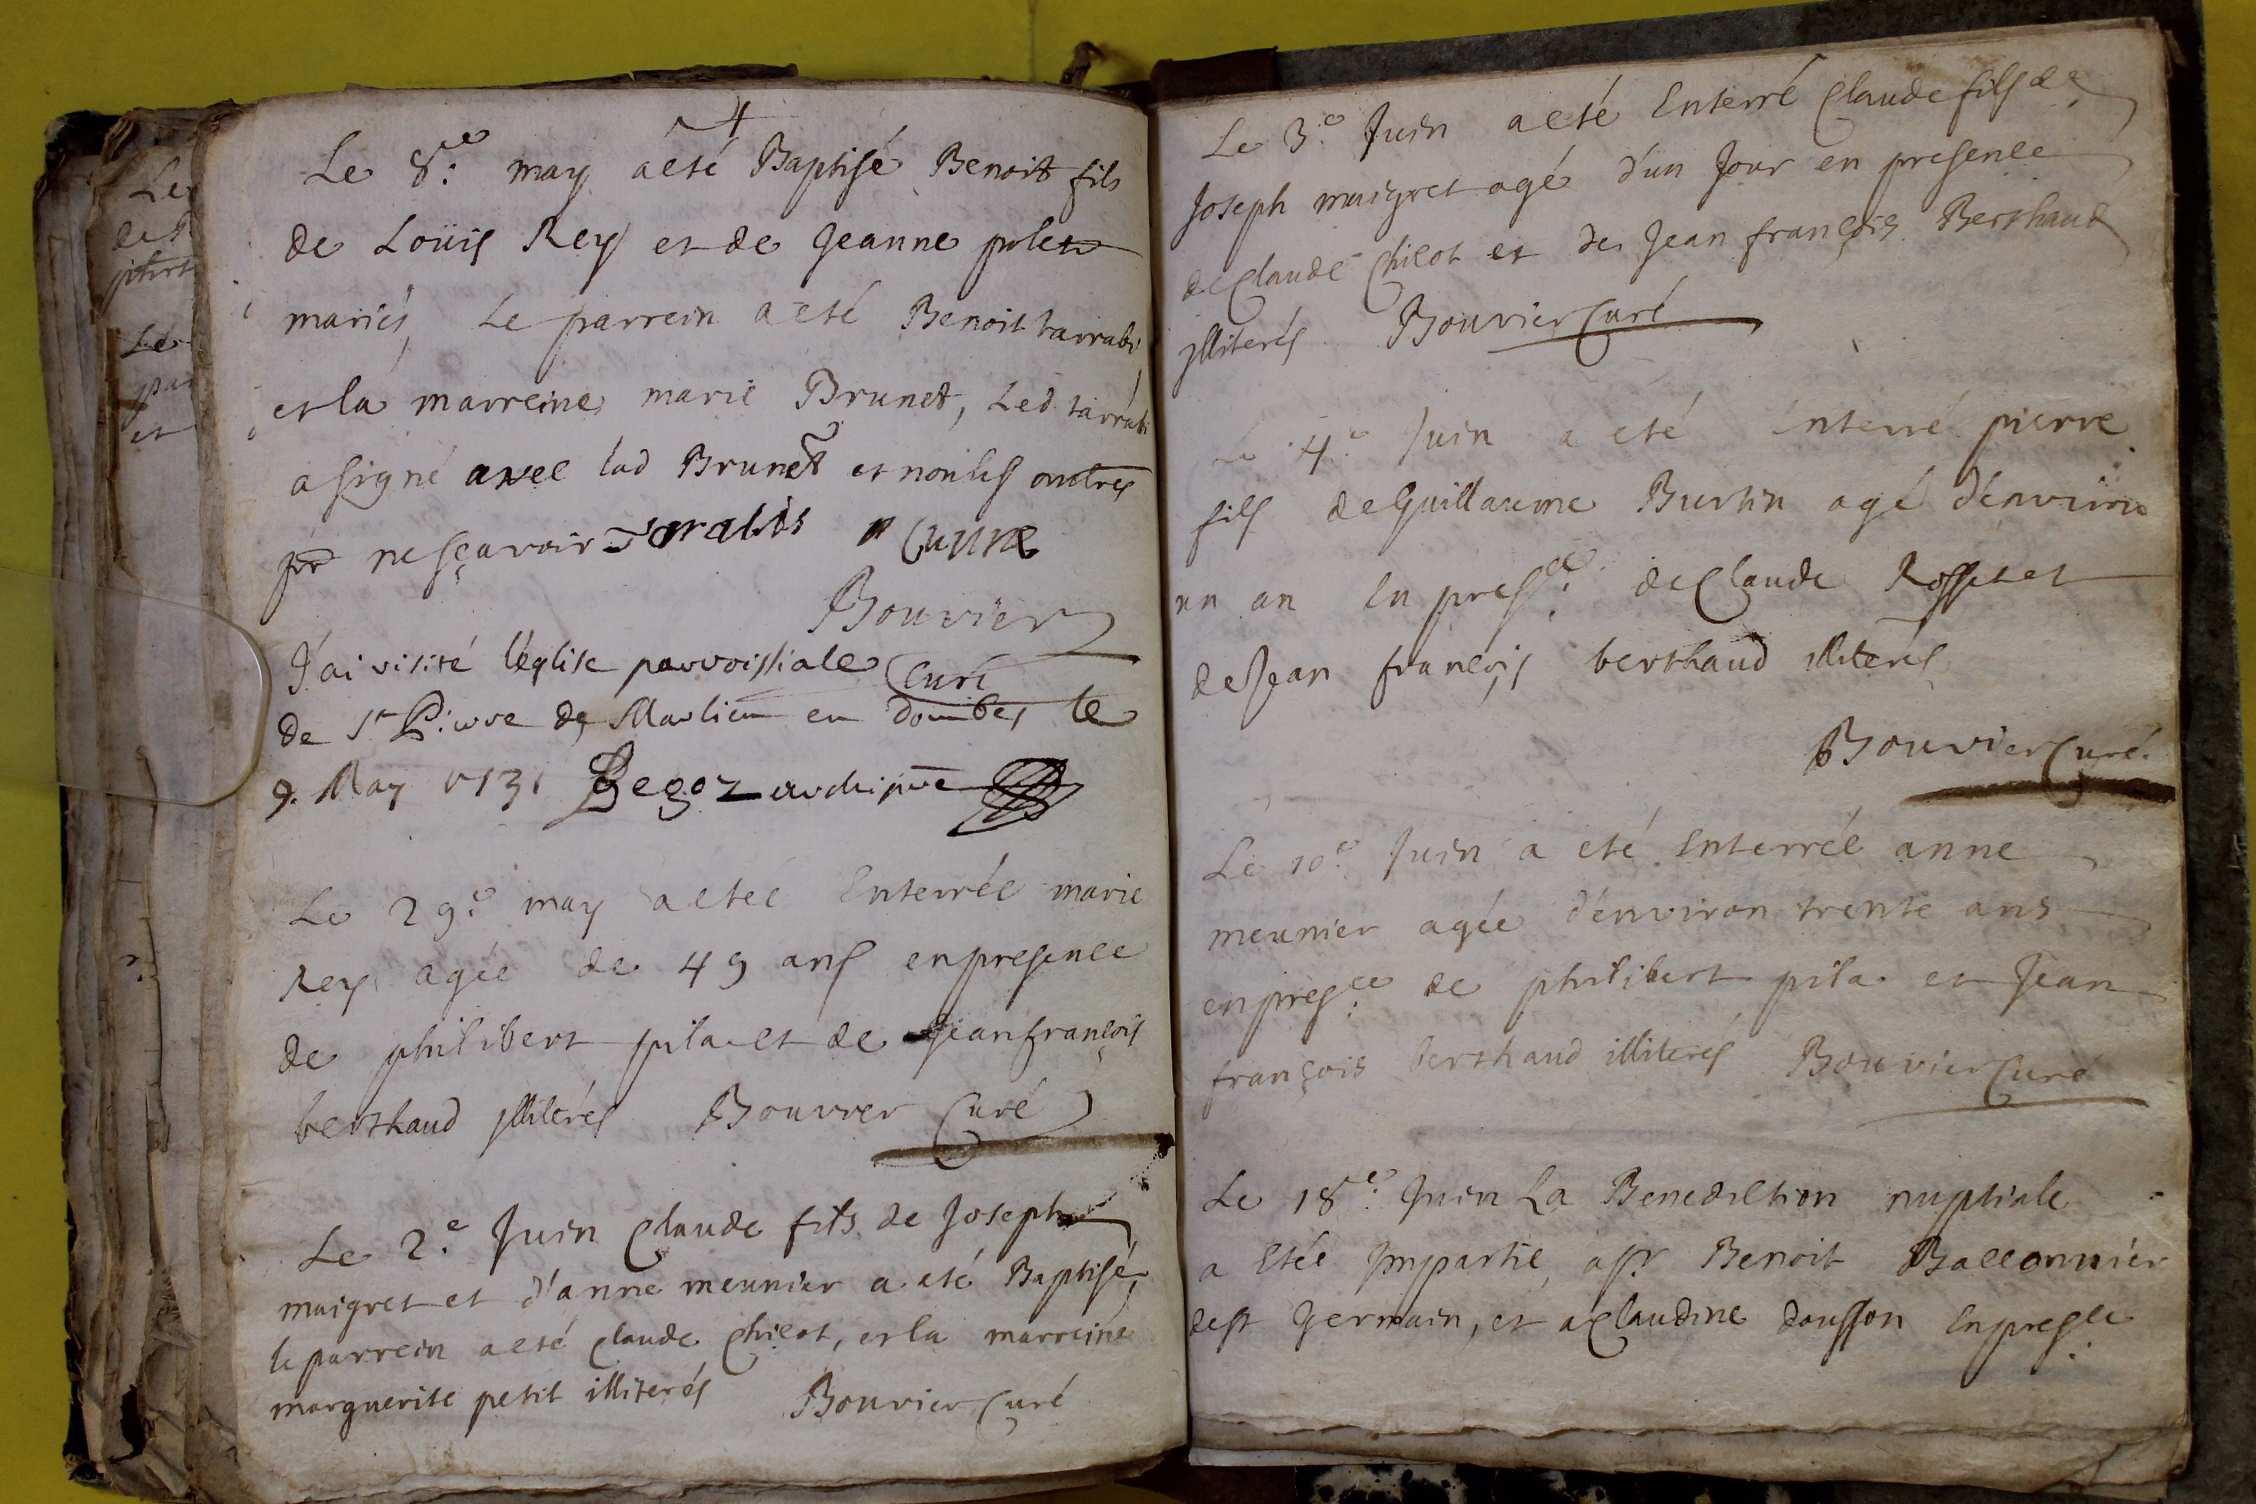 Le 8.e may a eté Baptisé Benoit fils
de Loüis Rey et de Jeanne polet
mariés, Le parrein a eté Benoit tarrabi
et la marreine marie Brunet, Led tarrabi
a signé avec lad Brunet et non les autres
pr ne sçavoir
Bouvier
Curé
J'ai visité l'église parroissiale
de St Pierre de Marlieu en Dombes le
9. May 1731 Begoz archiprre
Le 29.e may a eteé Enterrée marie
Rey agée de 49 ans en presence
de philibert pila et de Jean françois
berthaud jlliterés Bouvier Curé
Le 2.e Juin Claude fils de Joseph
maigret et d'anne meunier a eté Baptisé,
le parrein a eté Claude Chicot, et la marreine
marguerite petit illiterés Bouvier Curé
Le
de
Le
par
et
Le 3.e Juin a eté Enterré Claude fils de
Joseph maigret agé d'un Jour en presence
de Claude Chicot et de Jean françois Berthaud
jlliterés Bouvier Curé
Le 4.e Juin a eté Enterré pierre
fils de Guillaume Burtin agé d'environ
un an En pres.ce de Claude Rosset et
de Jean françois berthaud illiterés
Bouvier Curé.
Le 10.e Juin a eté Enterrée anne
meunier agée d'environ trente ans
en pres.ce de philibert pila et Jean
françois berthaud illiterés Bouvier Curé
Le 18.e Juin La Benediction nuptiale
a Eteé Jmpartie a sr Benoit Balloonnier
de st Germain, et a Claudine dousson En pres.ce